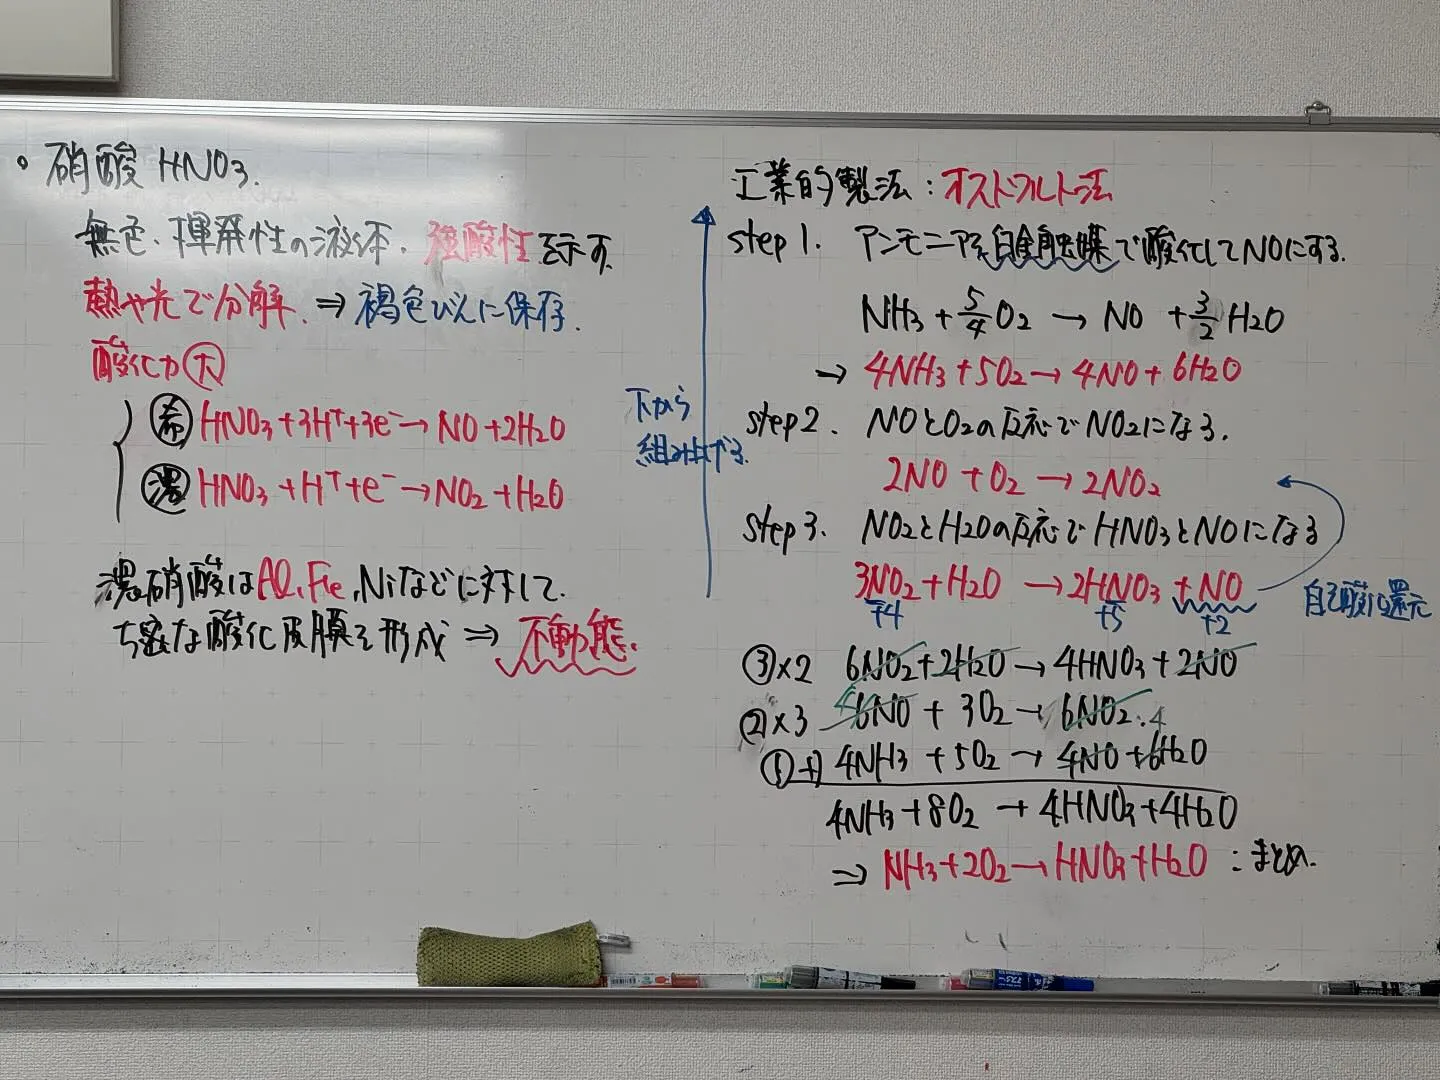 。硝酸 HNO₃.
無色・揮発性の液体. 強酸性を示す.
熱や光で分解. ⇒ 褐色びんに保存.
酸化力 大
希 HNO₃+3H⁺+3e⁻→NO+2H₂O
濃 HNO₃+H⁺+e⁻→NO₂+H₂O
濃硝酸はAl,Fe,Niなどに対して.
ち密な酸化皮膜を形成 ⇒ 不動態.
下から
組み上げる.
工業的製法:オストワルト法
step1. アンモニアを白金触媒で酸化してNOにする.
NH₃+5/4O₂→NO+3/2H₂O
→ 4NH₃+5O₂→4NO+6H₂O
step2. NOとO₂の反応でNO₂になる.
2NO+O₂→2NO₂
step3. NO₂とH₂Oの反応でHNO₃とNOになる
3NO₂+H₂O→2HNO₃+NO
+4 +5 +2
自己酸化還元
③×2 6NO₂+2H₂O→4HNO₃+2NO
②×3 4 6NO+3O₂→6NO₂.4
①+) 4NH₃+5O₂→4NO+6H₂O
4NH₃+8O₂→4HNO₃+4H₂O
⇒ NH₃+2O₂→HNO₃+H₂O:まとめ.